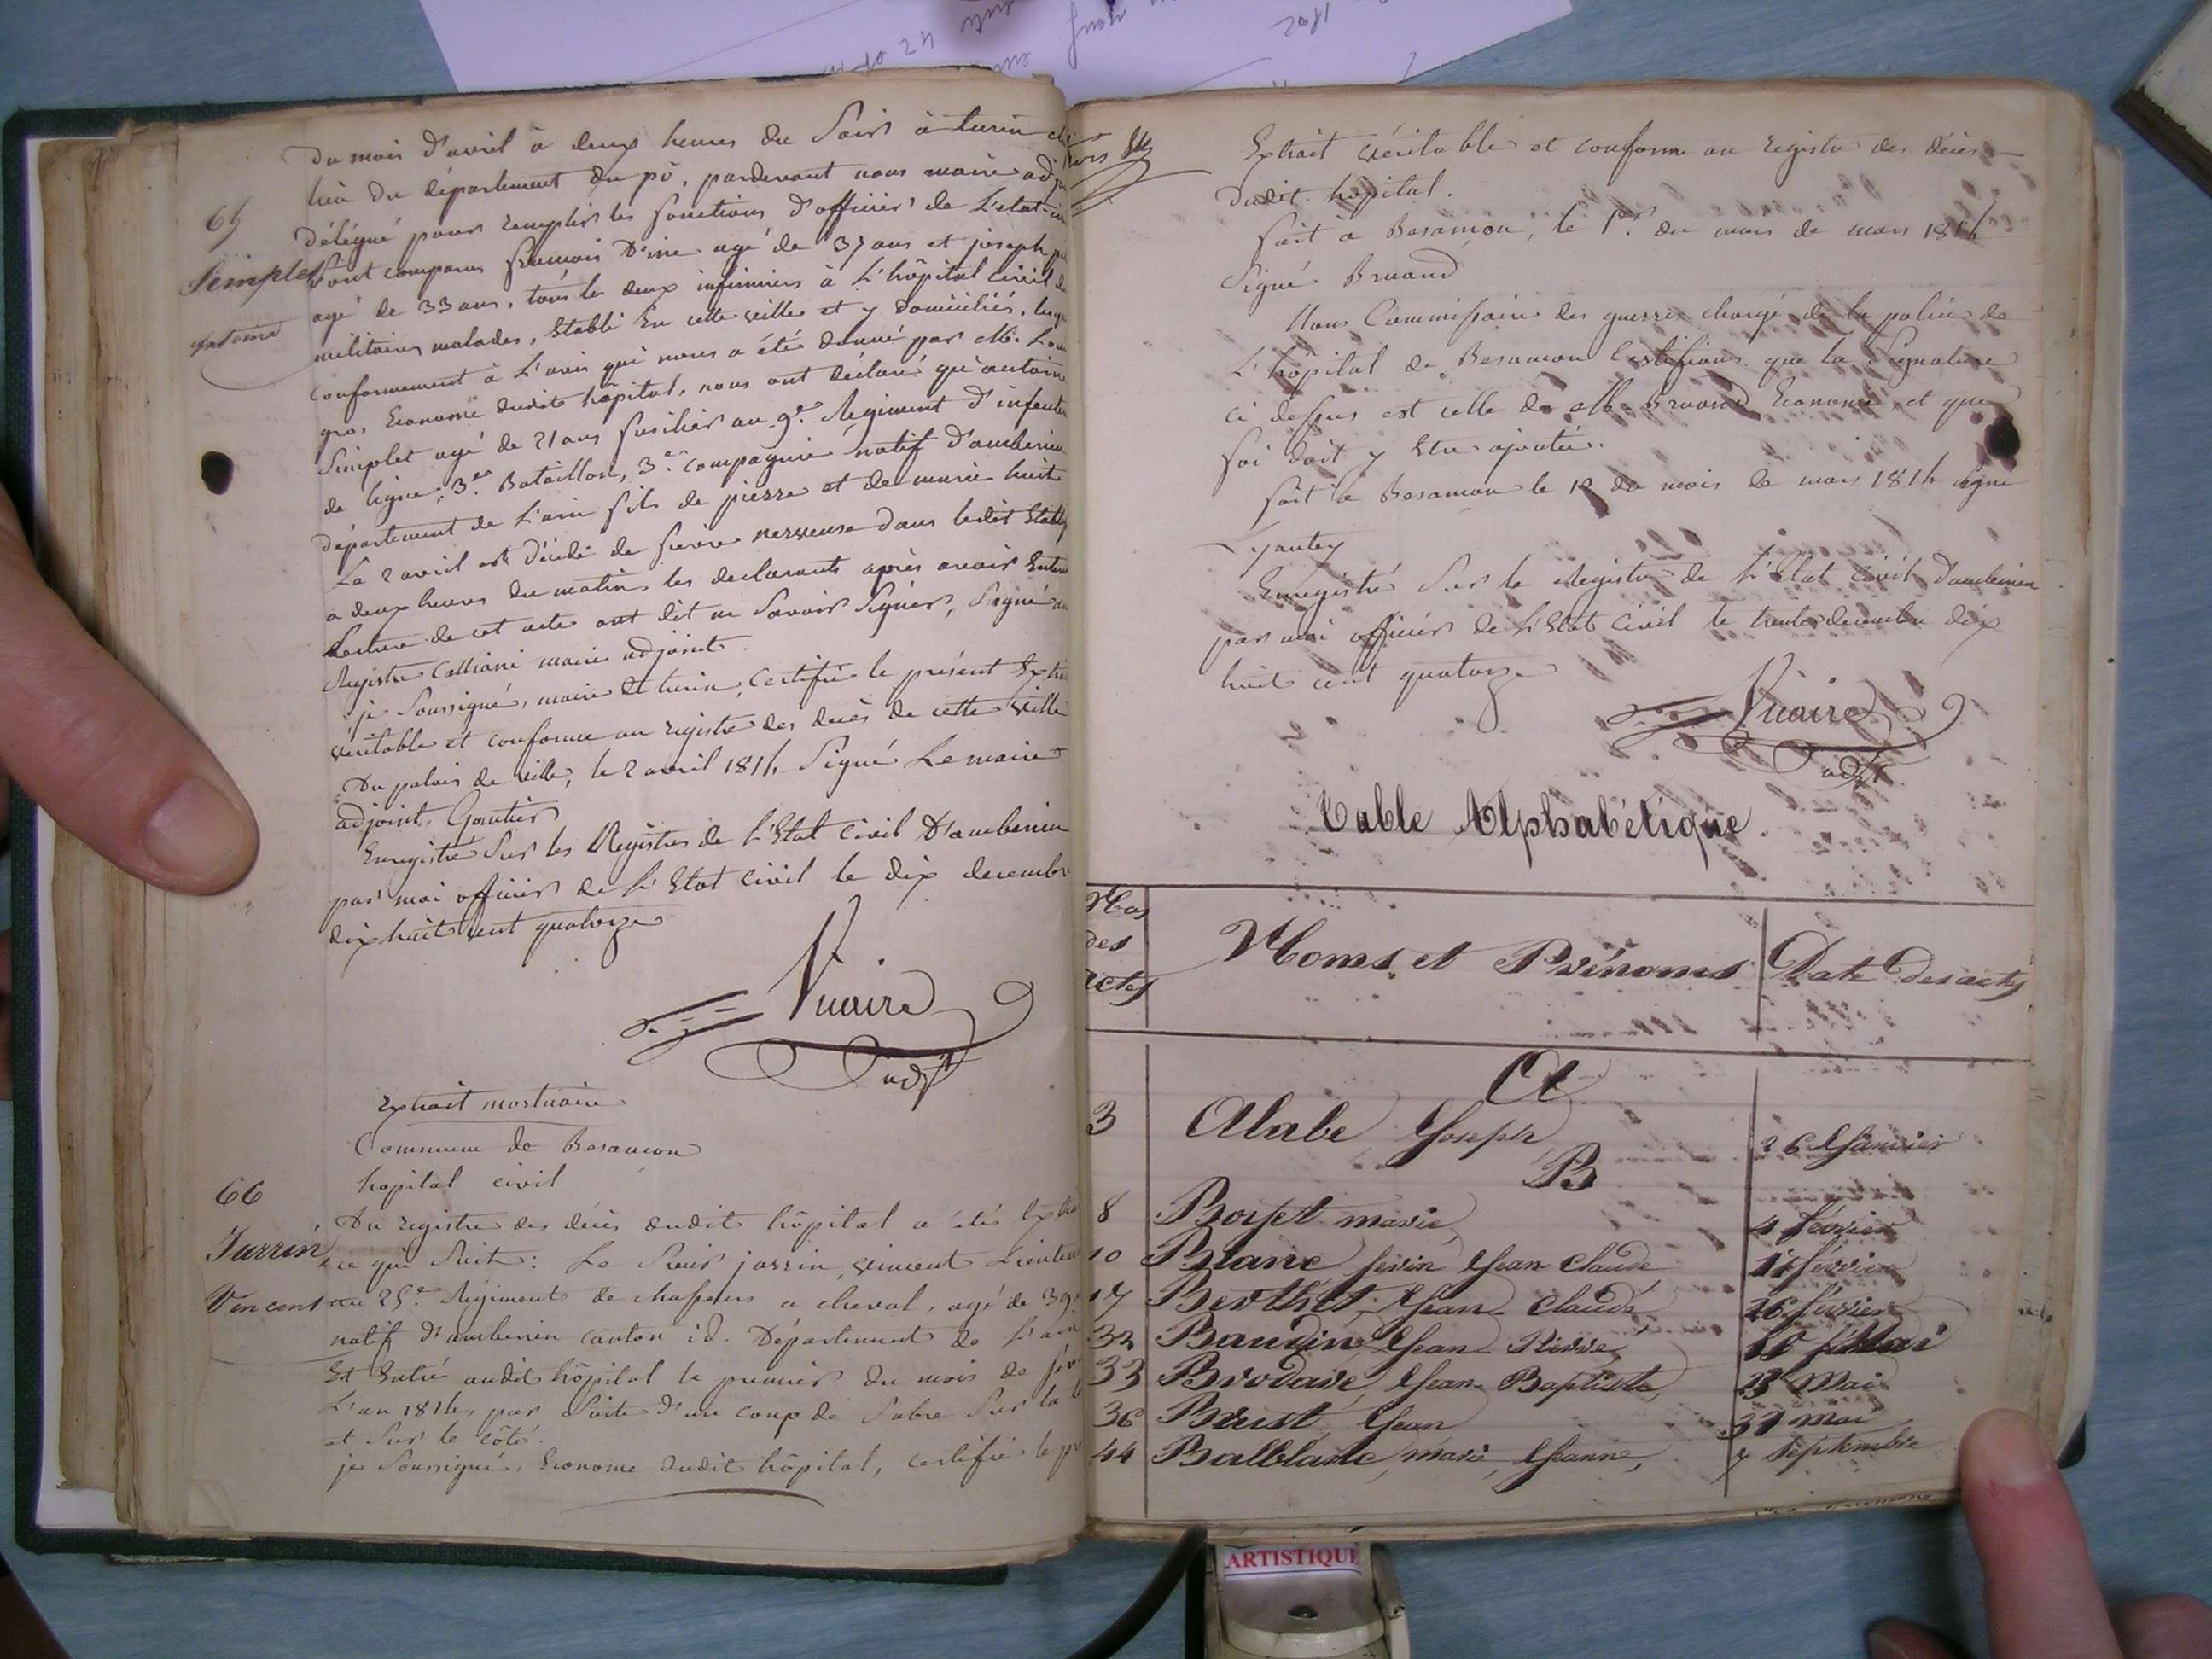 du mois d'avril à deux heures du soir à turin
lieu du département du pô, pardevant nous maire
délégué pour remplir les fonctions d'officier de L'etat
65
Simplet
antoine
sont comparus francois Dine agé de 37 ans et joseph
agé de 33 ans, tous les deux infirmiers à L'hôpital civil
militaires malades, Etabli En cette ville et y domiciliés,
conformement à L'avis qui nous a été donné par Mr.
gros Econome dudit hôpital, nous ont déclaré qu'antoine
Simplet agé de 21 ans fusilier au 9e. Régiment d'infanterie
de ligne, 3e. Bataillon, 3e. compagnie natif d'amberieu
département de L'ain fils de pierre et de marie huit
Le 2 avril est décédé de fievre nerveuse dans ledit
a deux heures du matin les declarants après avoir
Lecture de cet acte ont dit ne savoir signer, Signé au
Registre Calliani maire adjoint.
je soussigné, maire de turin, certifie le présent
véritable et conforme au registre des decès de cette ville
Du palais de ville, le 2 avril 1814 Signé Le maire
adjoint, Gautier
Enregistré sur les Registres de L'Etat Civil D'amberieu
par moi officier de L'Etat civil le dix decembre
dix huit cent quatorze
Vicaire
adjt
Extrait mortuaire
Commune de Besancon
hopital civil
66
Jarrin,
Vincent
Du registre des décès dudit hôpital a été
ce qui suit: Le sieur jarrin, vincent
au 25e. Régiment de chasseurs a cheval, agé de 39
natif d'amberieu canton id. Département de L'ain
Est Entré audit hôpital le premier du mois de
L'an 1814, par suite d'un coup de sabre sur la
et sur le côté.
je soussigné, Econome dudit hôpital, certifie le
Extrait véritable et conforme au registre des décès
dudit hôpital.
fait a Besancon, le 1er. du mois de mars 1814
Signé Bruand
Nous Commissaire des guerres chargé de la police de
L'hôpital de Besancon Certifions que la Signature
ci dessus est celle de Mr. Bruand Econome, et que
foi doit y Etre ajoutée.
fait a Besancon le 12 du mois de mars 1814 signé
Enregistré sur le Registre de L'Etat civil d'amberieu
par moi officier de L'Etat Civil le trente decembre dix
huit cent quatorze
Vicaire
adjt
Table Alphabétique.
Nos des actes Noms et Prénoms Date des actes
A
3 Alabe Joseph 26 Janvier
B
8 marie, 4 février
10 Blanc Jean Claude février
17 Berthet, Jean Claude 26 février
32 Baudin Jean Pierre, Mai
33 Brodare Jean Baptiste, Mai
36 Brust, Jean 31 mai
44 Balblanc, marie, Jeanne, 7 Septembre
ARTISTIQUE